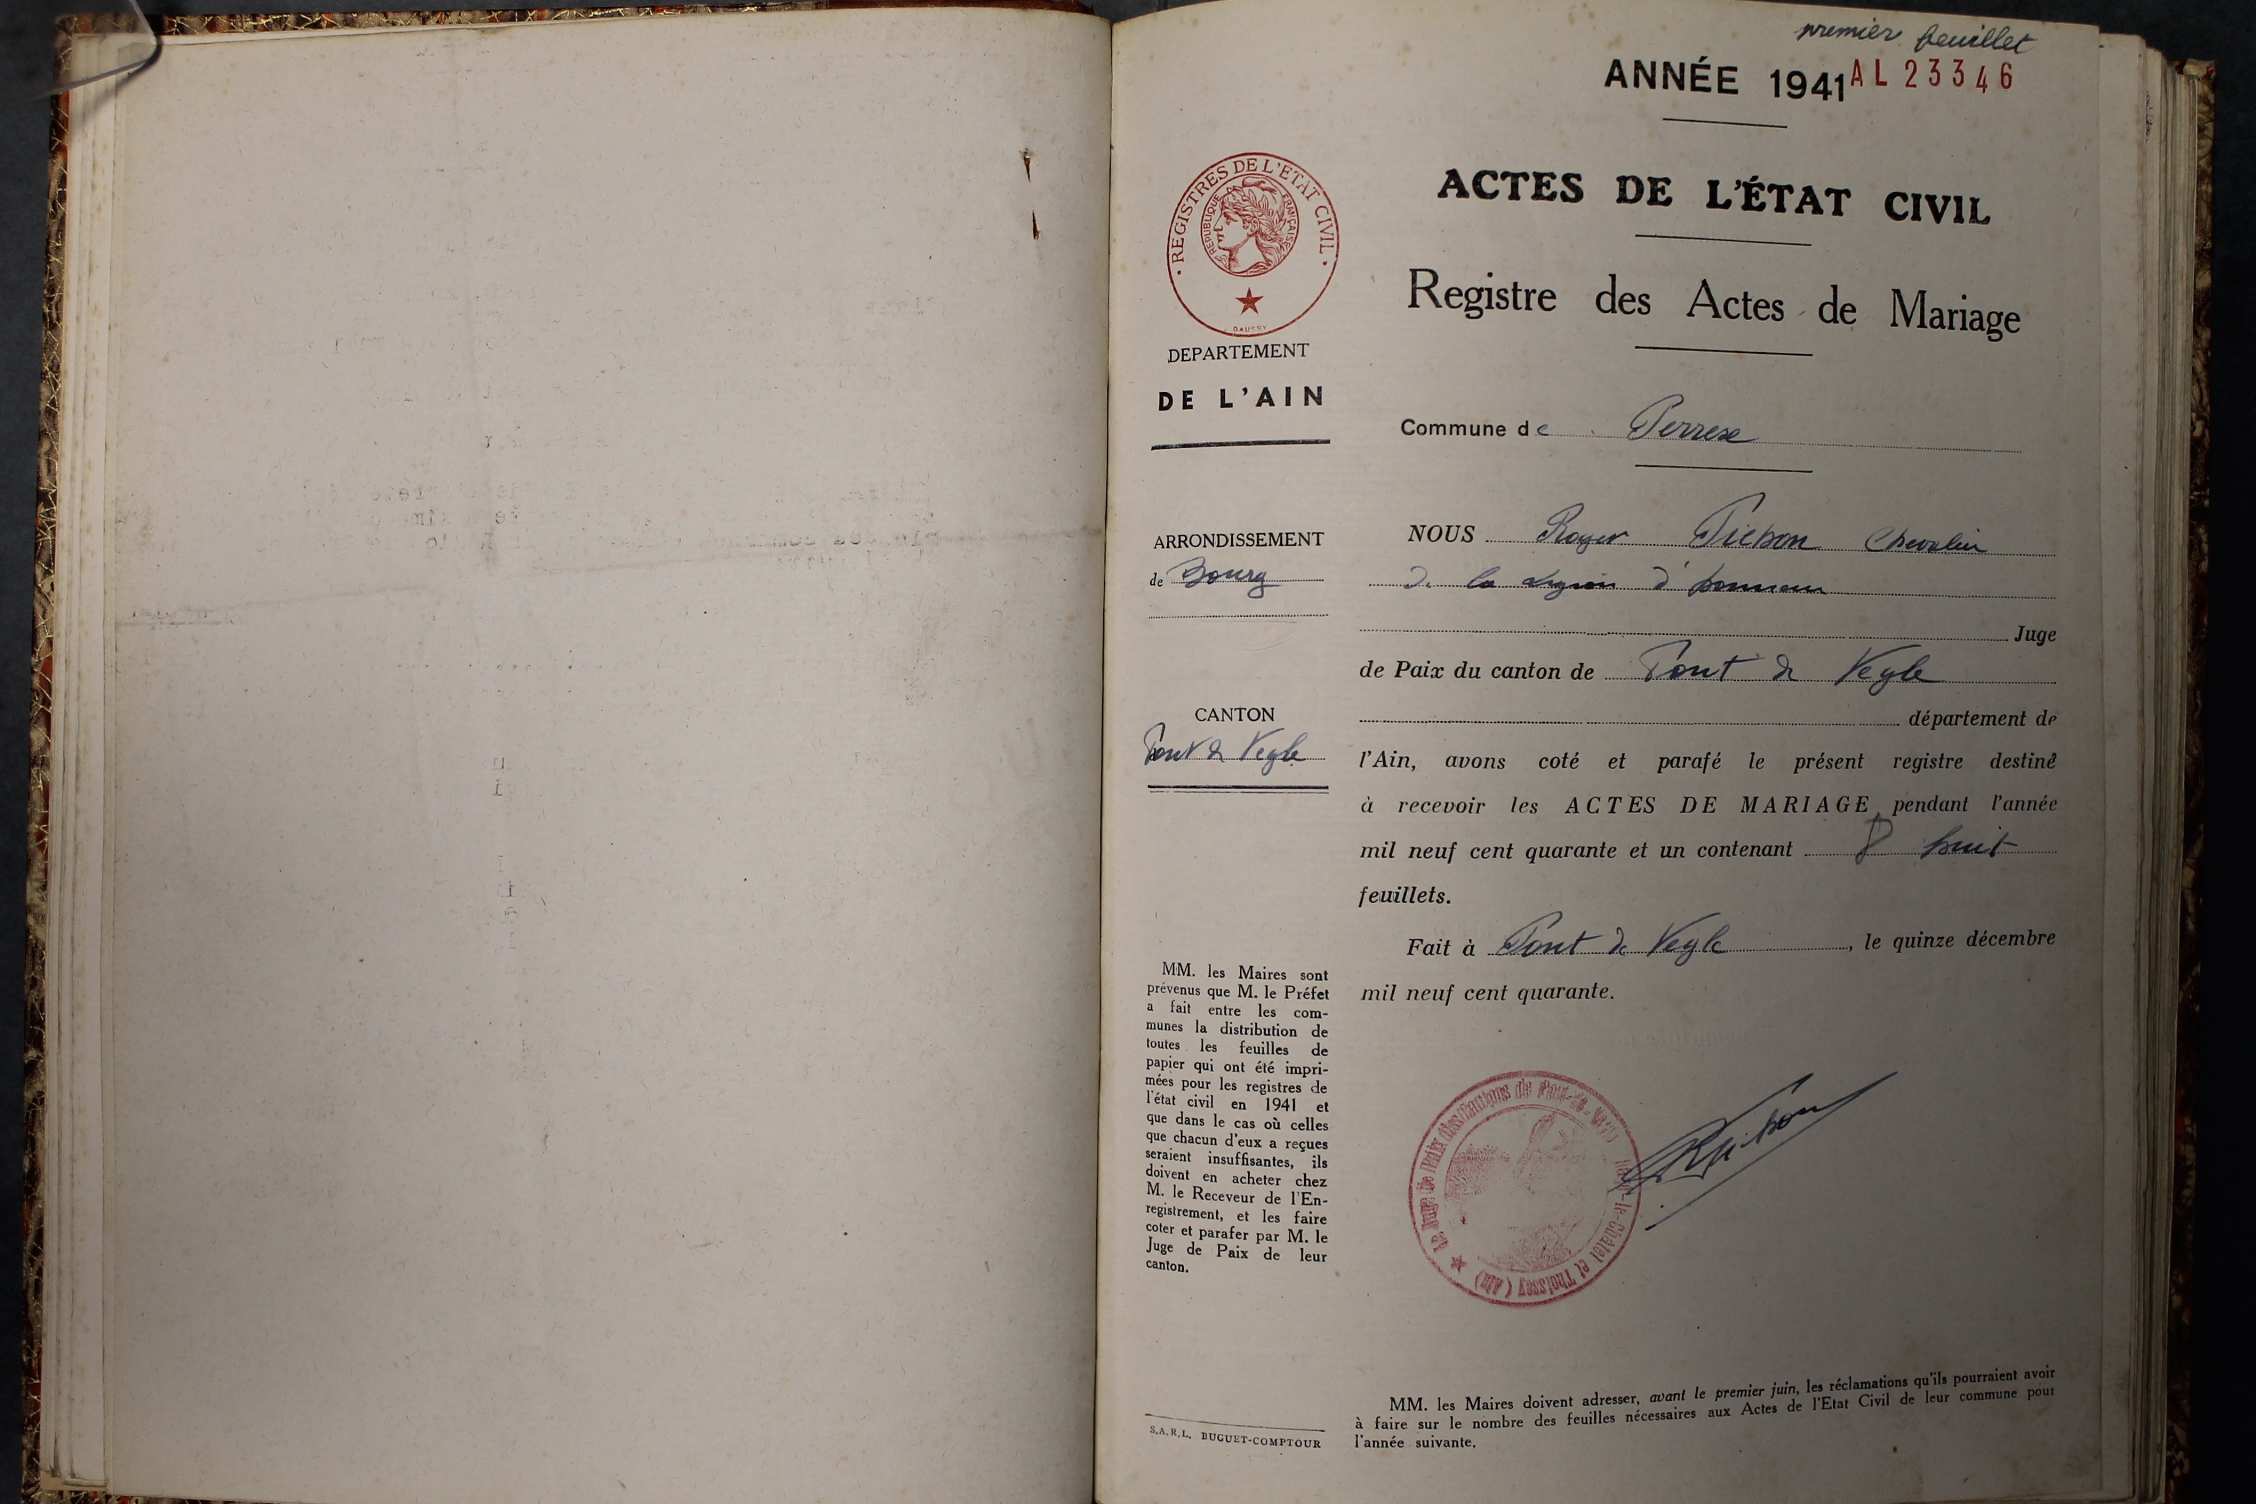 premier feuillet
ANNÉE 1941 AL 23346
ACTES DE L'ÉTAT CIVIL
Registre des Actes de Mariage
REGISTRES DE L'ETAT CIVIL
REPUBLIQUE FRANÇAISE
DAUSSY
DEPARTEMENT
DE L'AIN
Commune de Perrex
ARRONDISSEMENT
de Bourg
CANTON
Pont de Veyle
NOUS Roger Pichon Chevalier
de la Légion d'honneur
Juge
de Paix du canton de Pont de Veyle
département de
l'Ain, avons coté et parafé le présent registre destiné
à recevoir les ACTES DE MARIAGE pendant l'année
mil neuf cent quarante et un contenant 8 huit
feuillets.
Fait à Pont de Veyle, le quinze décembre
mil neuf cent quarante.
MM. les Maires sont
prévenus que M. le Préfet
a fait entre les com-
munes la distribution de
toutes les feuilles de
papier qui ont été impri-
mées pour les registres de
l'état civil en 1941 et
que dans le cas où celles
que chacun d'eux a reçues
seraient insuffisantes, ils
doivent en acheter chez
M. le Receveur de l'En-
registrement, et les faire
coter et parafer par M. le
Juge de Paix de leur
canton.
S.A.R.L. BUGUET-COMPTOUR
MM. les Maires doivent adresser, avant le premier juin, les réclamations qu'ils pourraient avoir
à faire sur le nombre des feuilles nécessaires aux Actes de l'Etat Civil de leur commune pour
l'année suivante.